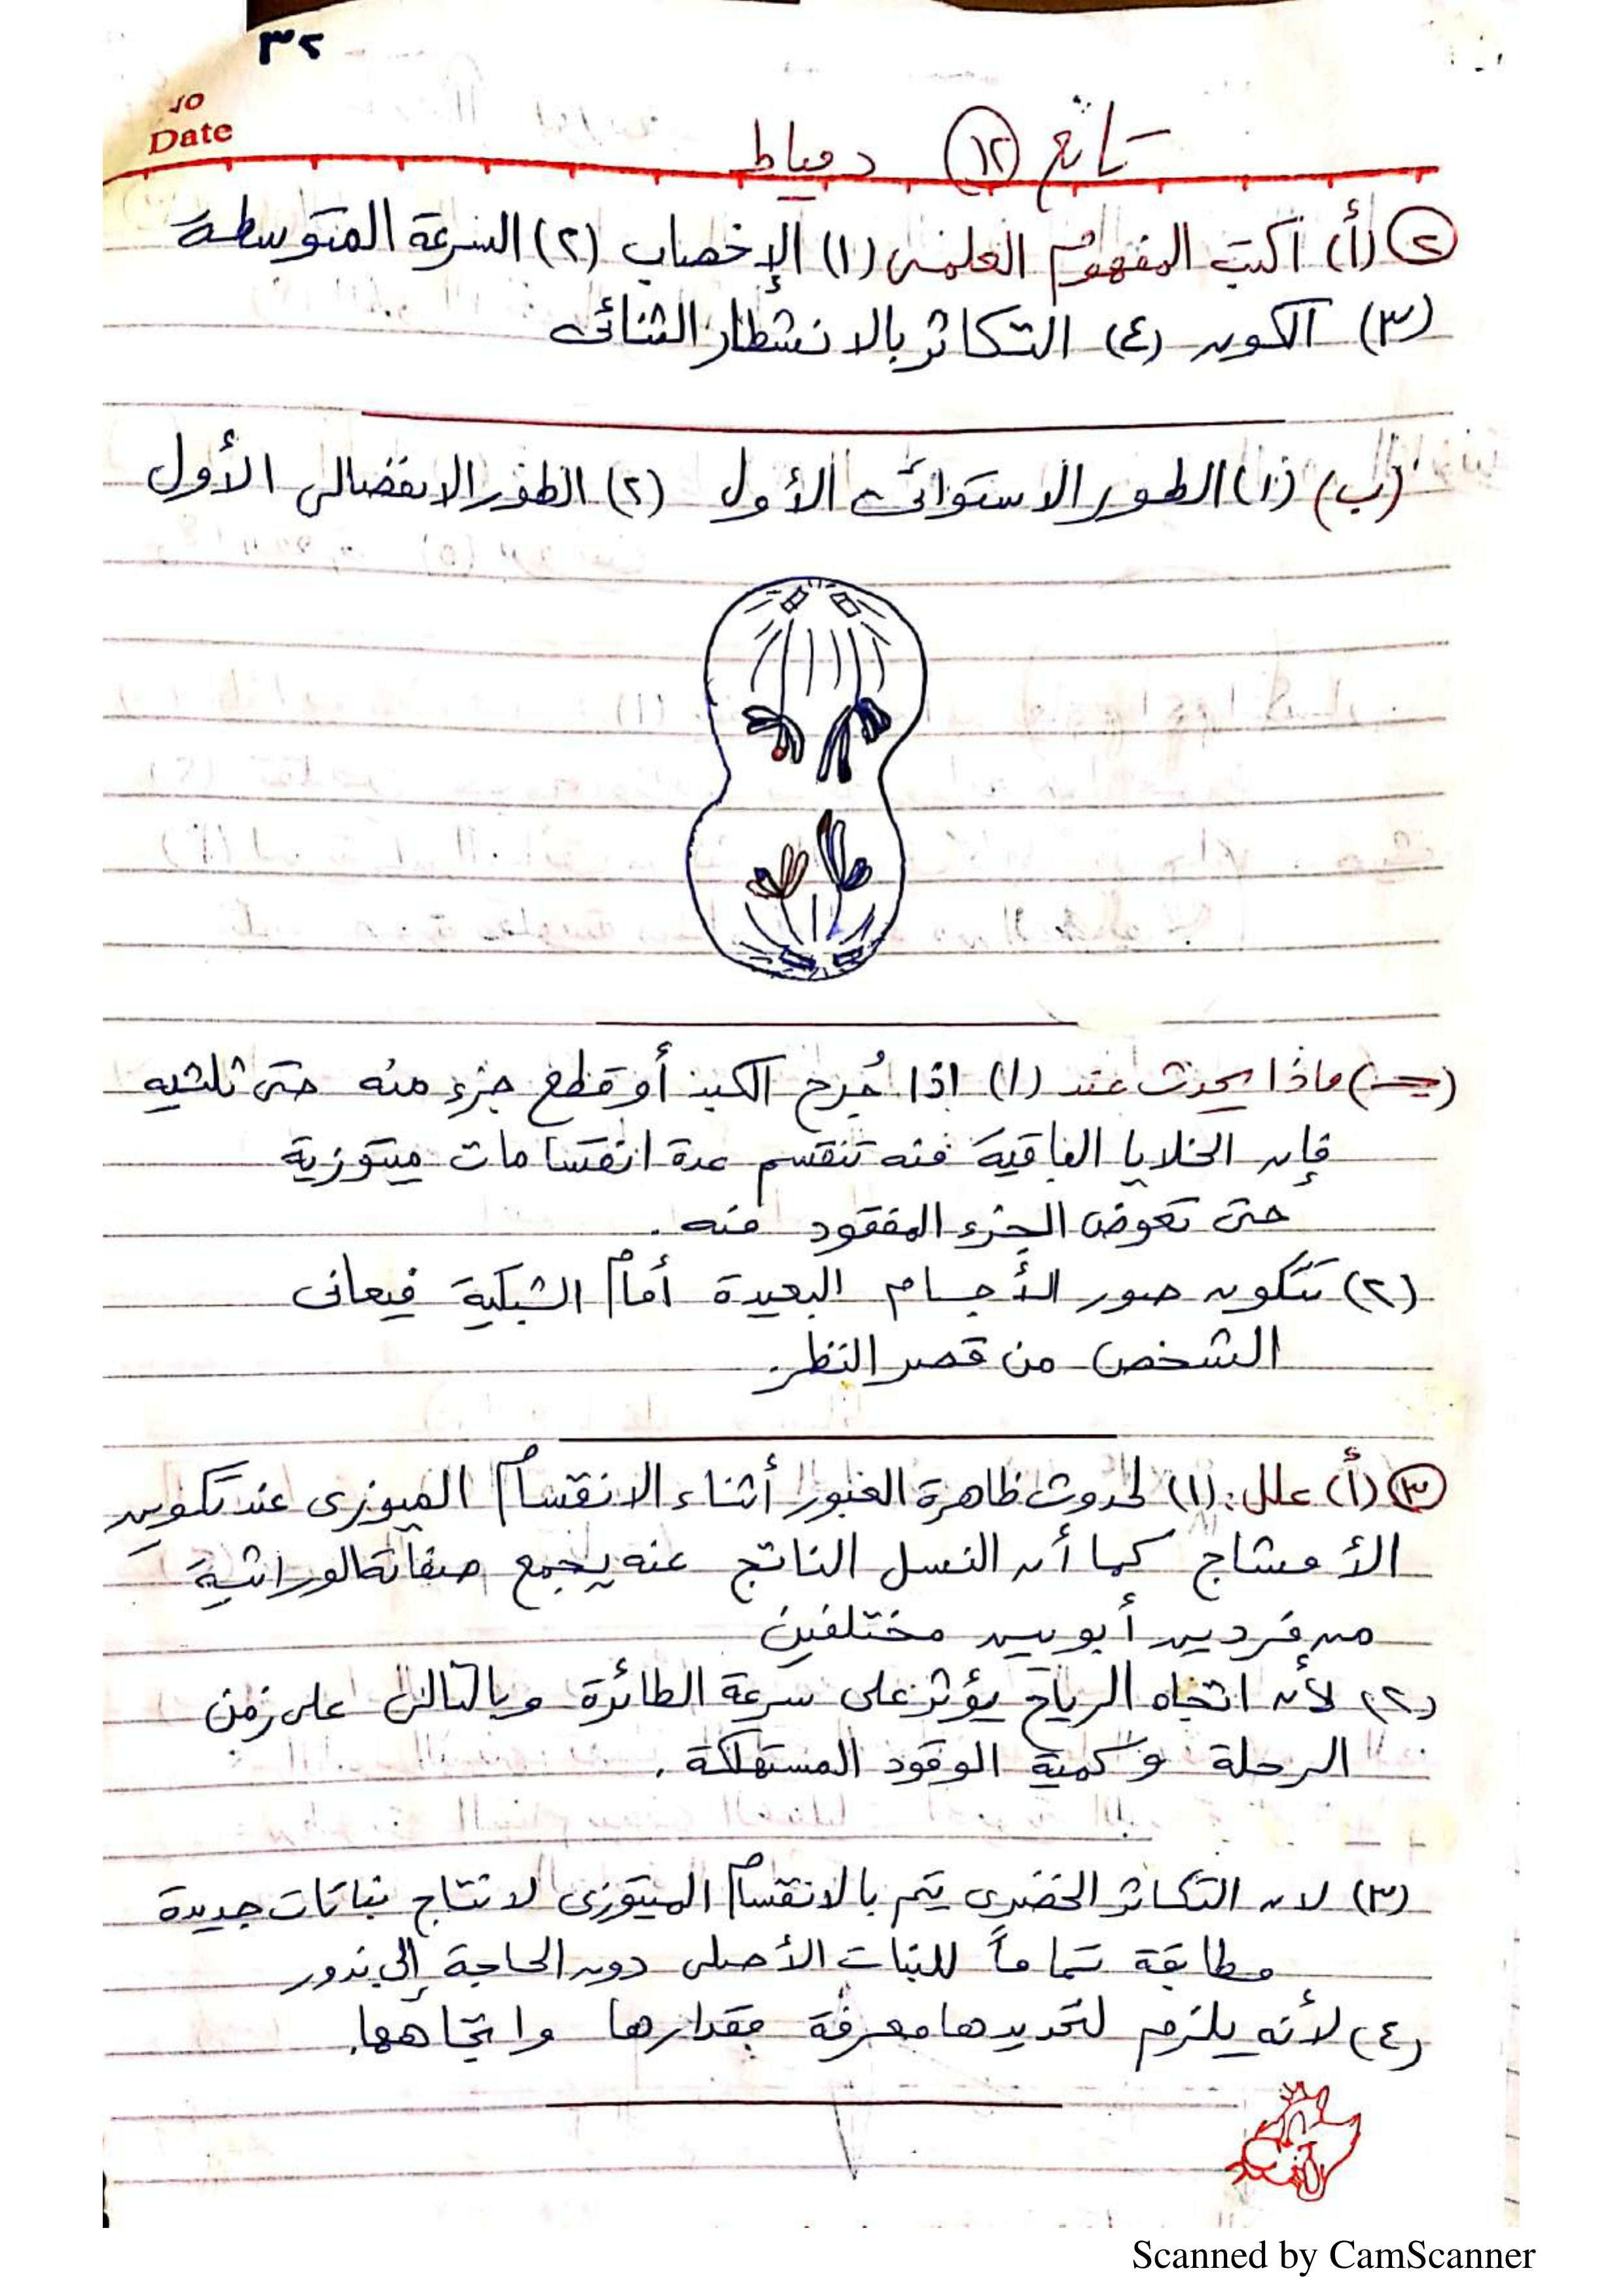 ٣٢
No
Date
تابع (١٢) دمياط
(٢) (أ) اكتب المفهوم العلمى (١) الإخصاب (٢) السرعة المتوسطة
(٣) الكون (٤) التكاثر بالانشطار الثنائى
(ب) (١) الطور الاستوائى الأول (٢) الطور الانفصالى الأول
(جـ) ماذا يحدث عند (١) اذا جُرح الكبد أو قطع جزء منه حتى ثلثيه
فإن الخلايا الباقية منه تنقسم عدة انقسامات ميتوزية
حتى تعوض الجزء المفقود منه.
(٢) تتكون صور الأجسام البعيدة أمام الشبكية فيعانى
الشخص من قصر النظر.
(٣) (أ) علل: (١) لحدوث ظاهرة العبور أثناء الانقسام الميوزى عند تكوين
الأمشاج كما أن النسل الناتج عنه يجمع صفاته الوراثية
من فردين أبويين مختلفين
(٢) لأن اتجاه الرياح يؤثر على سرعة الطائرة وبالتالى على زمن
الرحلة وكمية الوقود المستهلكة.
(٣) لان التكاثر الخضرى يتم بالانقسام الميتوزى لانتاج نباتات جديدة
مطابقة تماماً للنبات الأصلى دون الحاجة إلى بذور
(٤) لأنه يلزم لتحديدها معرفة مقدارها واتجاهها.
Scanned by CamScanner